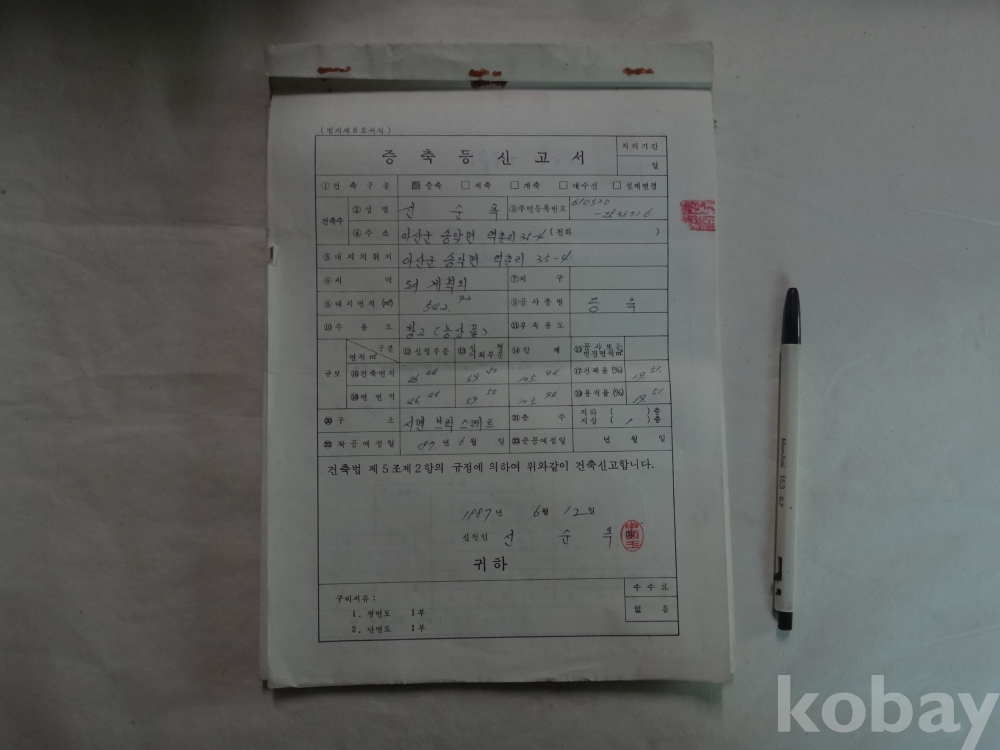 (별지제8호서식)
증축등신고서
처리기간
일
①건축구분 증축 재축 개축 대수선 설계변경
건축주 ②성명 선순옥 ③주민등록번호
④주소 아산군 송악면 역촌리 35-4 (전화 )
⑤대지의위치 아산군 송악면 역촌리 35-4
⑥지역 도시계획외 ⑦지구
⑧대지면적 (㎡) 542 ⑨공사종별 증축
⑩주용도 창고(농산물) ⑪부속용도
구분 면적㎡ ⑫신청부분 ⑬신청이외부분 ⑭합계 ⑮공사또는변경면적㎡
규모 ⑯건축면적 46 59 50 105 94 ⑰건폐율 (%) 19 51
⑱연면적 46 59 50 105 94 ⑲용적율 (%) 19 51
⑳구조 시멘 브럭 스레트 층수 지하 ( )층
지상 ( )층
착공예정일 87년 6월 일 준공예정일 년 월 일
건축법 제5조제2항의 규정에 의하여 위와같이 건축신고합니다.
1987년 6월 12일
신청인 선순옥
귀하
수수료
구비서류:
없음
1. 평면도 1부
2. 단면도 1부
kobay